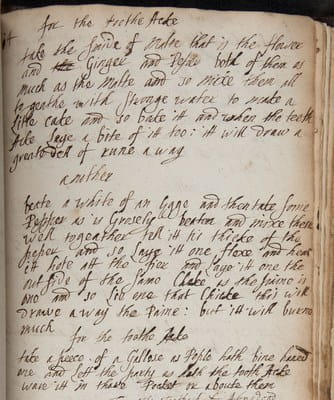 for the toothe Ake
take the smide of Malte that is the flower
and Ginger and Peper both of them as
much as the Malte and so mixe them all
to geathe with stronge water to make a
little cake and so bake it and when the teeth
Ake Laye a bite of it too: it will draw a
greate dell of rume away
another
beate a white of an Egge and then take some
Pepper as is Grosely beaten and mixe them
well togeather tell it is thicke of the
peper and so Laye it one flaxe and heat
it hote att the fier and Laye it one the
out side of the same Cheke as the paine is
one and so Lie one that Cheke this will
drawe a way the Paine: but it will burne
much
for the toothe Ake
take a peece of a Gallose as Peple hath bine hanged
one and Lett the party as hath the tooth Ake
ware it in thare Pocket or aboute them